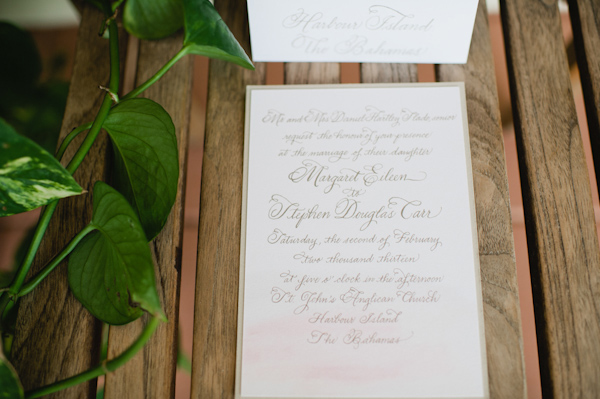 Harbour Island
The Bahamas
Mr and Mrs Daniel Hartley Slade
request the honour of your presence
at the marriage of their daughter
Margaret Eileen
to
Stephen Douglas Carr
Saturday, the second of February,
two thousand thirteen
at five o'clock in the afternoon
St. John's Anglican Church
Harbour Island
The Bahamas